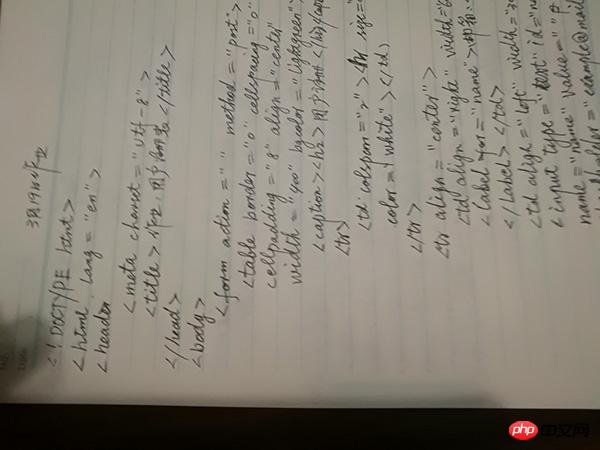 3月19日作业
<!DOCTYPE html>
<html lang="en">
<header
<meta charset="utf-8">
<title>作业:用户注册表</title>
</head>
<body>
<form action=" " method="post">
<table border="0" cellspacing="0"
cellpadding="8" align="center"
width="400" bgcolor="lightgreen">
<caption><h2>用户注册</h2>
<tr>
<td colspan="2"><hr size=
color="white"></td>
</tr>
<tr align="center">
<td align="right" width=
<label for="name">
</label></td>
<td align="left" width=
<input type="text" id=
name="name" value="
color="example@mail
php 中文网